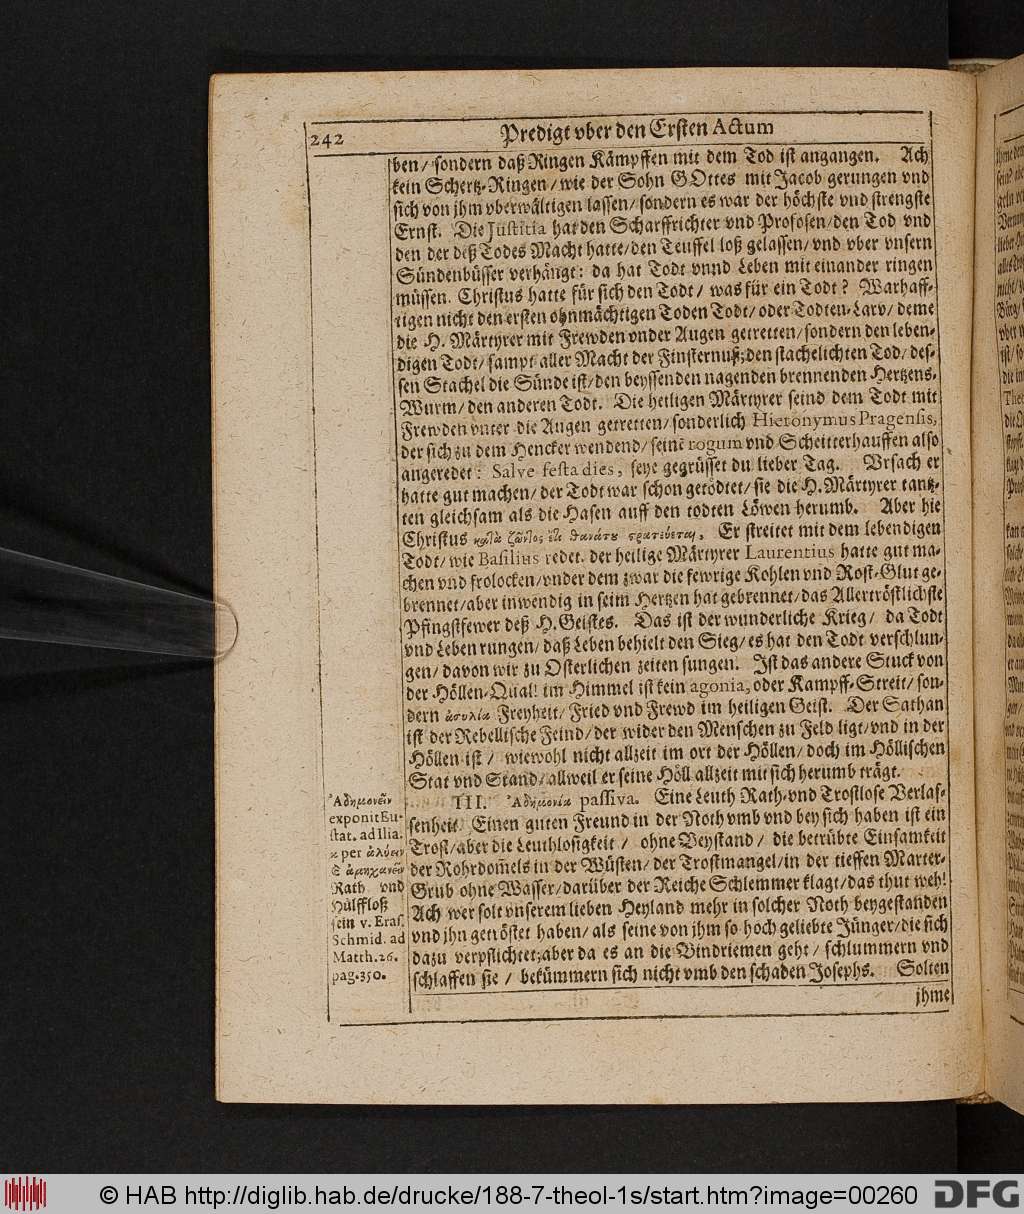 242
Predigt vber den Ersten Actum
ben/ sondern daß Ringen Kämpffen mit dem Tod ist angangen. Ach
kein Schertz-Ringen/ wie der Sohn GOttes mit Jacob gerungen vnd
sich von jhm vberwältigen lassen/ sondern es war der höchste vnd strengste
Ernst. Die Justitia hat den Scharffrichter vnd Profosen/ den Tod vnd
den der deß Todes Macht hatte/ den Teuffel loß gelassen/ vnd vber vnsern
Sündenbüsser verhängt: da hat Todt vnnd Leben mit einander ringen
müssen. Christus hatte für sich den Todt/ was für ein Todt? Warhaff-
tigen nicht den ersten ohnmächtigen Toden Todt/ oder Todten-Larv/ deme
die H. Märtyrer mit Frewden vnder Augen getretten/ sondern den leben-
digen Todt/ sampt aller Macht der Finsternuß; den stachelichten Tod/ des-
sen Stachel die Sünde ist/ den beyssenden nagenden brennenden Hertzens-
Wurm/ den anderen Todt. Die heiligen Märtyrer seind dem Todt mit
Frewden vnter die Augen getretten/ sonderlich Hieronymus Pragensis,
der sich zu dem Hencker wendend/ seinē rogum vnd Scheitterhauffen also
angeredet: Salve festa dies, seye gegrüsset du lieber Tag. Vrsach er
hatte gut machen/ der Todt war schon getödtet/ sie die H. Märtyrer tantz-
ten gleichsam als die Hasen auff den todten Löwen herumb. Aber hie
Christus ζῶντος ἔτι θανάτου στρατεύεται, Er streitet mit dem lebendigen
Todt/ wie Basilius redet. der heilige Märtyrer Laurentius hatte gut ma-
chen vnd frolocken/ vnder dem zwar die fewrige Kohlen vnd Rost-Glut ge-
brennet/ aber inwendig in seim Hertzen hat gebrennet/ das Allertröstlichste
Pfingstfewer deß H. Geistes. Das ist der wunderliche Krieg/ da Todt
vnd Leben rungen/ daß Leben behielt den Sieg/ es hat den Todt verschlun-
gen/ davon wir zu Osterlichen zeiten sungen. Ist das andere Stuck von
der Höllen-Qual! im Himmel ist kein agonia, oder Kampff-Streit/ son-
dern ἀσυλία Freyheit/ Fried vnd Frewd im heiligen Geist. Der Sathan
ist der Rebellische Feind/ der wider den Menschen zu Feld ligt/ vnd in der
Höllen ist/ wiewohl nicht allzeit im ort der Höllen/ doch im Höllischen
Stat vnd Stand/ allweil er seine Höll allzeit mit sich herumb trägt.
III. Ἀδημονία passiva. Eine Leuth Rath- vnd Trostlose Verlas-
senheit. Einen guten Freund in der Noth vmb vnd bey sich haben ist ein
Trost/ aber die Leuthlosigkeit/ ohne Beystand/ die betrübte Einsamkeit
der Rohrdom̄els in der Wüsten/ der Trostmangel/ in der tieffen Marter-
Grub ohne Wasser/ darüber der Reiche Schlemmer klagt/ das thut weh!
Ach wer solt vnserem lieben Heyland mehr in solcher Noth beygestanden
vnd jhn getröstet haben/ als seine von jhm so hoch geliebte Jünger/ die sich
dazu verpflichtet; aber da es an die Bindriemen geht/ schlummern vnd
schlaffen sie/ bekümmern sich nicht vmb den schaden Josephs. Solten
jhme
Ἀδημονεῖν
exponit Eu-
stat. ad Ilia.
κ per ἀλύειν
& ἀμηχανεῖν
Rath vnd
Hülffloß
sein v. Eras.
Schmid. ad
Matth. 26.
pag. 350.
© HAB http://diglib.hab.de/drucke/188-7-theol-1s/start.htm?image=00260
DFG